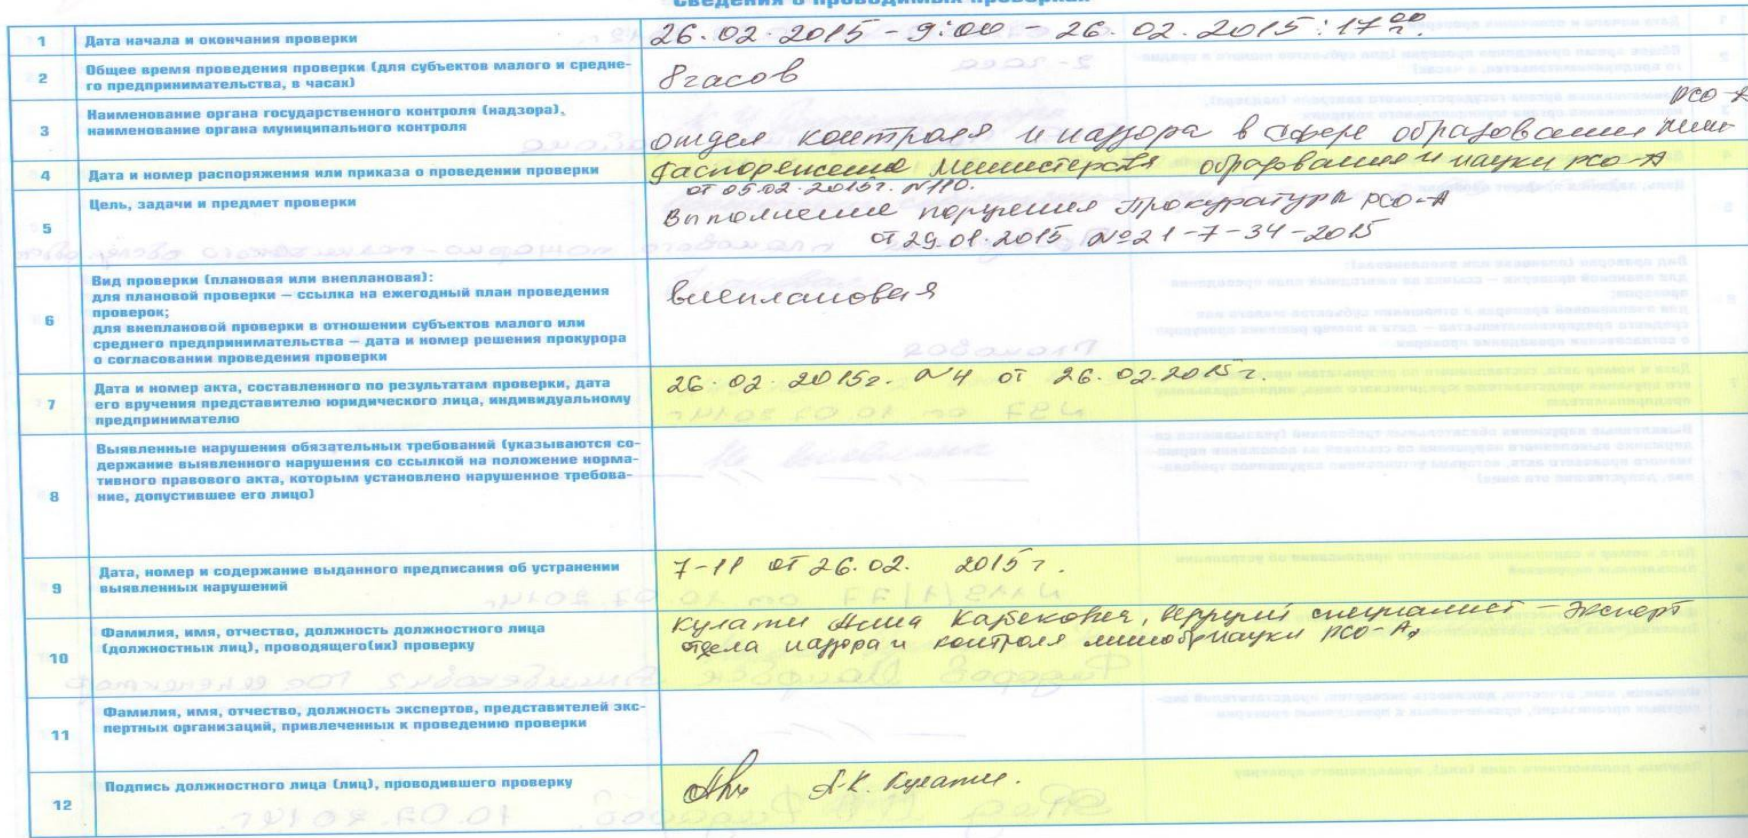 Сведения о проводимых проверках
1 Дата начала и окончания проверки 26.02.2015 - 9:00 - 26.02.2015 : 17 00
2 Общее время проведения проверки (для субъектов малого и средне-
го предпринимательства, в часах) 8 часов
3 Наименование органа государственного контроля (надзора),
наименование органа муниципального контроля
РСО-А
отдел контроля и надзора в сфере образования
4 Дата и номер распоряжения или приказа о проведении проверки Распоряжение Министерства образования и науки РСО-А
от 05.02.2015г. №110.
5 Цель, задачи и предмет проверки Выполнение поручения Прокуратуры РСО-А
от 29.01.2015 №21-7-34-2015
6 Вид проверки (плановая или внеплановая): внеплановая
для плановой проверки — ссылка на ежегодный план проведения
проверок;
для внеплановой проверки в отношении субъектов малого или
среднего предпринимательства — дата и номер решения прокурора
о согласовании проведения проверки
7 Дата и номер акта, составленного по результатам проверки, дата 26.02.2015г. №4 от 26.02.2015г.
его вручения представителю юридического лица, индивидуальному
предпринимателю
8 Выявленные нарушения обязательных требований (указываются со-
держание выявленного нарушения со ссылкой на положение норма-
тивного правового акта, которым установлено нарушенное требова-
ние, допустившее его лицо)
9 Дата, номер и содержание выданного предписания об устранении 7-11 от 26.02. 2015г.
выявленных нарушений
10 Фамилия, имя, отчество, должность должностного лица Кулати Карбековна, ведущий специалист - эксперт
(должностных лиц), проводящего(их) проверку отдела надзора и контроля минобрнауки РСО-А
11 Фамилия, имя, отчество, должность экспертов, представителей экс-
пертных организаций, привлеченных к проведению проверки
12 Подпись должностного лица (лиц), проводившего проверку А.К. Кулати.